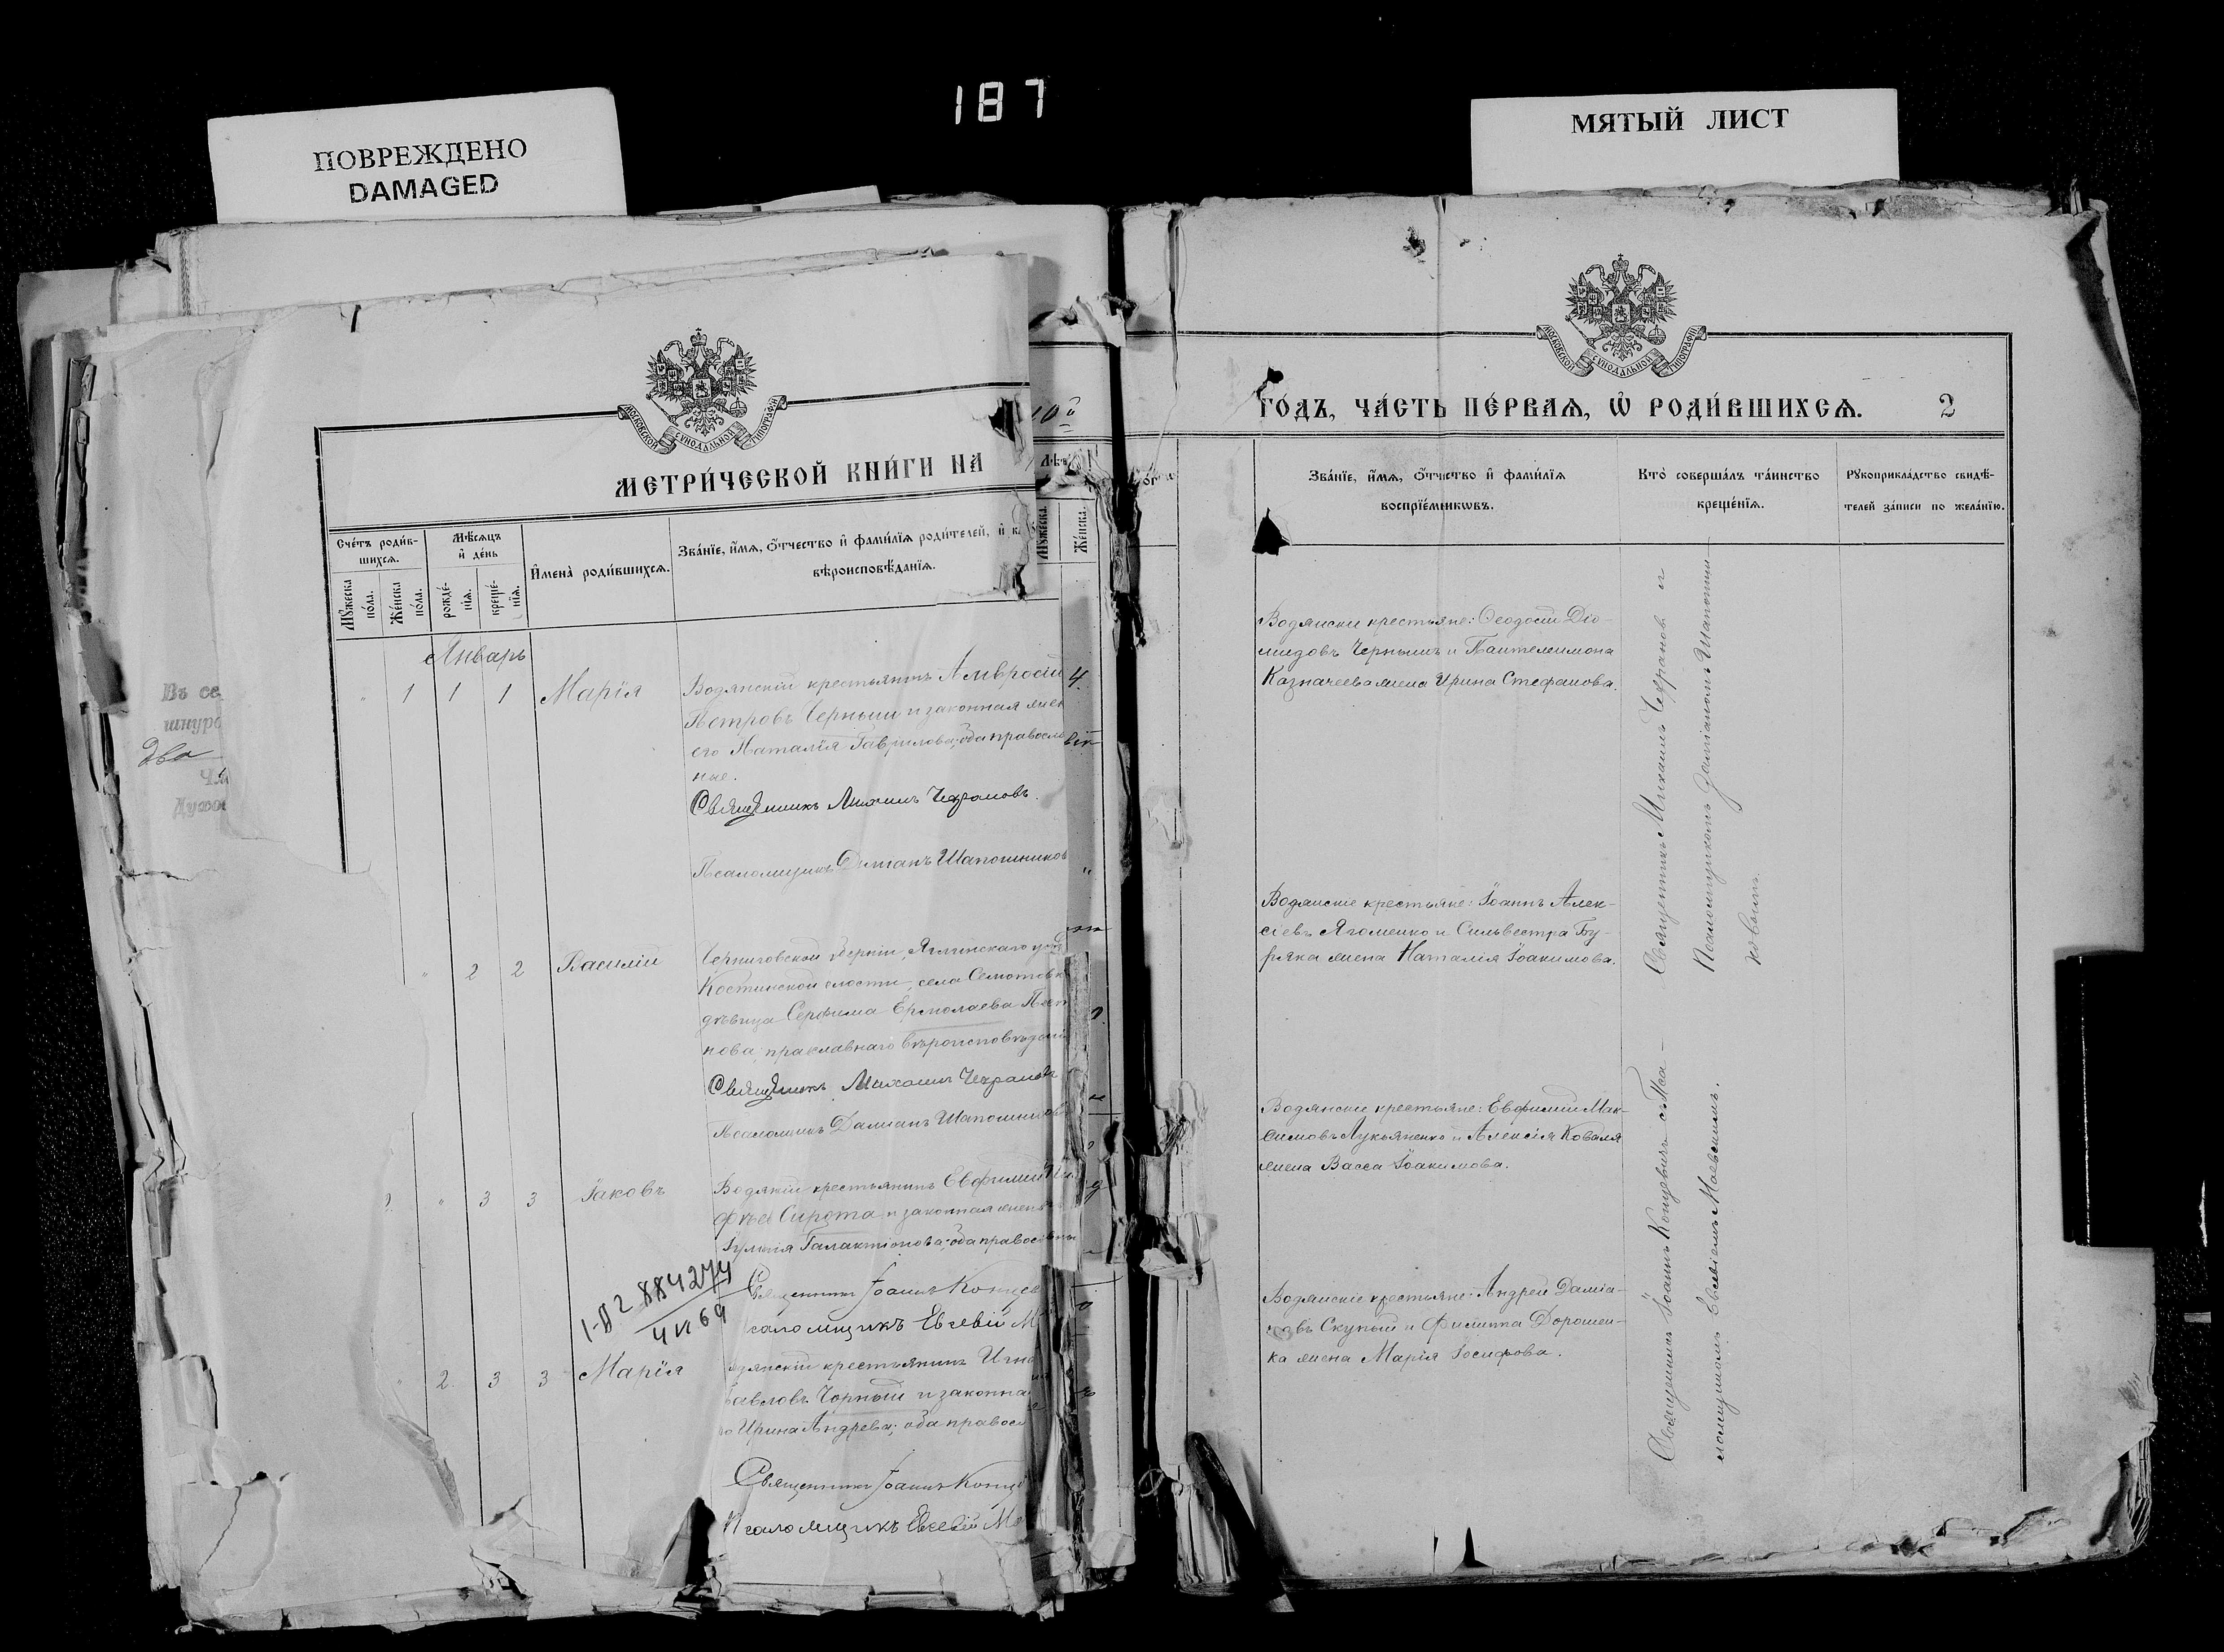 187
ПОВРЕЖДЕНО
DAMAGED
МЯТЫЙ ЛИСТ
Въ се
шнуро
два
Духов
МОСКОВСКОЙ СѴНОДАЛЬНОЙ ТИПОГРАФІИ
МЕТРИ́ЧЕСКОЙ КНИ́ГИ НА
Сче́тъ роди́в-
шихсѧ.
Мѣ́сѧцъ
и҆ де́нь
Мꙋ́жеска
по́ла.
Же́нска
по́ла.
рожде́-
нїѧ.
креще́-
нїѧ.
И҆мена̀ роди́вшихсѧ.
Зва́нїе, и҆́мѧ, ѻ҆́тчество и҆ фами́лїѧ роди́телей, и҆ ка
вѣроисповѣ́данїѧ.
Январь
" 1 1 1 Марія
Водянскій крестьянинъ Амвросій
Петровъ Черный и законная жен
его Наталія Гаврилова; оба правосла
ные.
Священникъ Михаилъ Чехрановъ.
Псаломщикъ Даміанъ Шапошников
" 2 2 Василій
Черниговской губерніи, Яглинскаго уѣз
Костинской волости, села Семотовк
дѣвица Серфима Ермолаева
нова; праславнаго вѣроисповѣдані
Священникъ Михаилъ Чехрановъ
Псаломщикъ Даміанъ Шапошников
" 3 3 Іаковъ
Водянкій крестьянинъ Евфимій
фѣев Сирота и законная жена
Іулитія Галактіонова; оба православны
Священникъ Іоаннъ Концев
саломщикъ Евсевій М
1-II 2 884274
4 VI 69
2 3 3 Марія
одянскій крестьянинъ Игна
авловъ Чорный и законна
го Ирина Андрева; оба правосл
Священникъ Іоаннъ Конце
Псаломщикъ Евсевій Ма
10й
Мꙋ́жеска.
Же́нска.
МОСКОВСКОЙ СѴНОДАЛЬНОЙ ТИПОГРАФІИ
ГО́ДЪ, ЧА́СТЬ ПЕ́РВАѦ, Ѽ РОДИ́ВШИХСѦ. 2
Зва́нїе, и҆́мѧ, ѻ҆́тчество и҆ фами́лїѧ
воспрїе́мникѡвъ.
Кто̀ соверша́лъ та́инство
креще́нїѧ.
Рꙋкоприкла́дство свидѣ́-
телей за́писи по жела́нїю.
Водянскіе крестьяне: Ѳеодосій Діо-
мидовъ Черный и Пантелеимона
Казначеева жена Ирина Стефанова.
Водянскіе крестьяне: Іоаннъ Алек-
сіевъ Ягоменко и Сильвестра Бу-
ряка жена Наталія Іоакимова.
Водянскіе крестьяне: Евфимій Мак-
симовъ Лукьяненко и Алексія Коваля
жена Васса Іоакимова.
Водянскіе крестьяне: Андрей Даміа-
новъ Скупый и Филиппа Дорошен-
ка жена Марія Іосифова.
Священникъ Михаилъ Чехрановъ и
Псаломщикомъ Даміаномъ Шапошни
ковымъ.
Священникъ Іоаннъ Концевичъ с Пса-
ломщикомъ Евсевіемъ Маевскимъ.